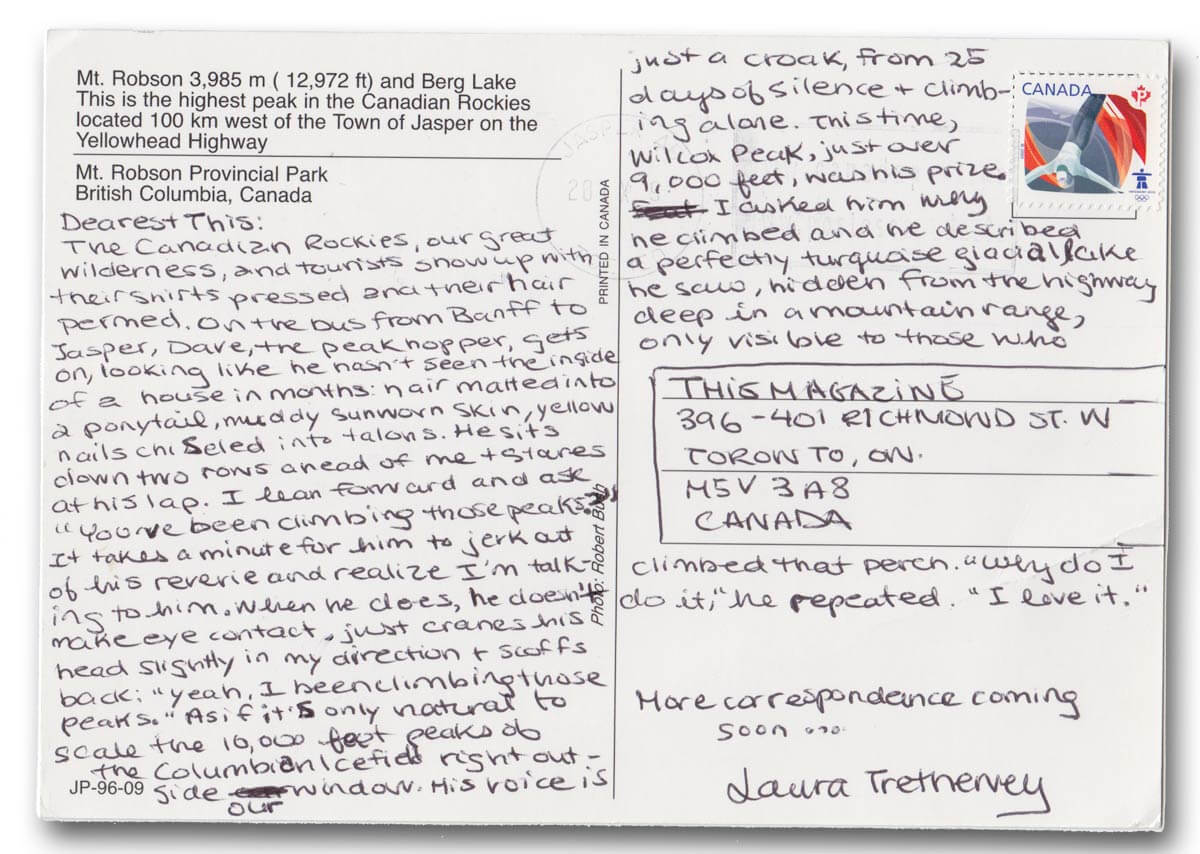 Mt. Robson 3,985 m ( 12,972 ft) and Berg Lake
This is the highest peak in the Canadian Rockies
located 100 km west of the Town of Jasper on the
Yellowhead Highway
Mt. Robson Provincial Park
British Columbia, Canada
Dearest This:
The Canadian Rockies, our great
wilderness, and tourists show up with
their shirts pressed and their hair
permed. On the bus from Banff to
Jasper, Dave, the peak hopper, gets
on, looking like he hasn't seen the inside
of a house in months: hair matted into
a ponytail, muddy sunworn skin, yellow
nails chiseled into talons. He sits
down two rows ahead of me + stares
at his lap. I lean forward and ask
"You've been climbing those peaks?"
It takes a minute for him to jerk out
of his reverie and realize I'm talk-
ing to him. When he does, he doesn't
make eye contact, just cranes his
head slightly in my direction + scoffs
back: "yeah, I been climbing those
peaks." As if it's only natural to
scale the 10,000 feet peaks of
the Columbian Icefield right out-
side our window. His voice is
JP-96-09
PRINTED IN CANADA
Photo: Robert Bush
just a croak, from 25
days of silence + climb-
ing alone. This time,
Wilcox Peak, just over
9,000 feet, was his prize.
I asked him why
he climbed and he described
a perfectly turquoise glacial lake
he saw, hidden from the highway
deep in a mountain range,
only visible to those who
CANADA
P
THIS MAGAZINE
396-401 RICHMOND ST. W
TORONTO, ON.
M5V 3A8
CANADA
climbed that perch. "Why do I
do it," he repeated. "I love it."
More correspondence coming
soon ...
Laura Trethewey